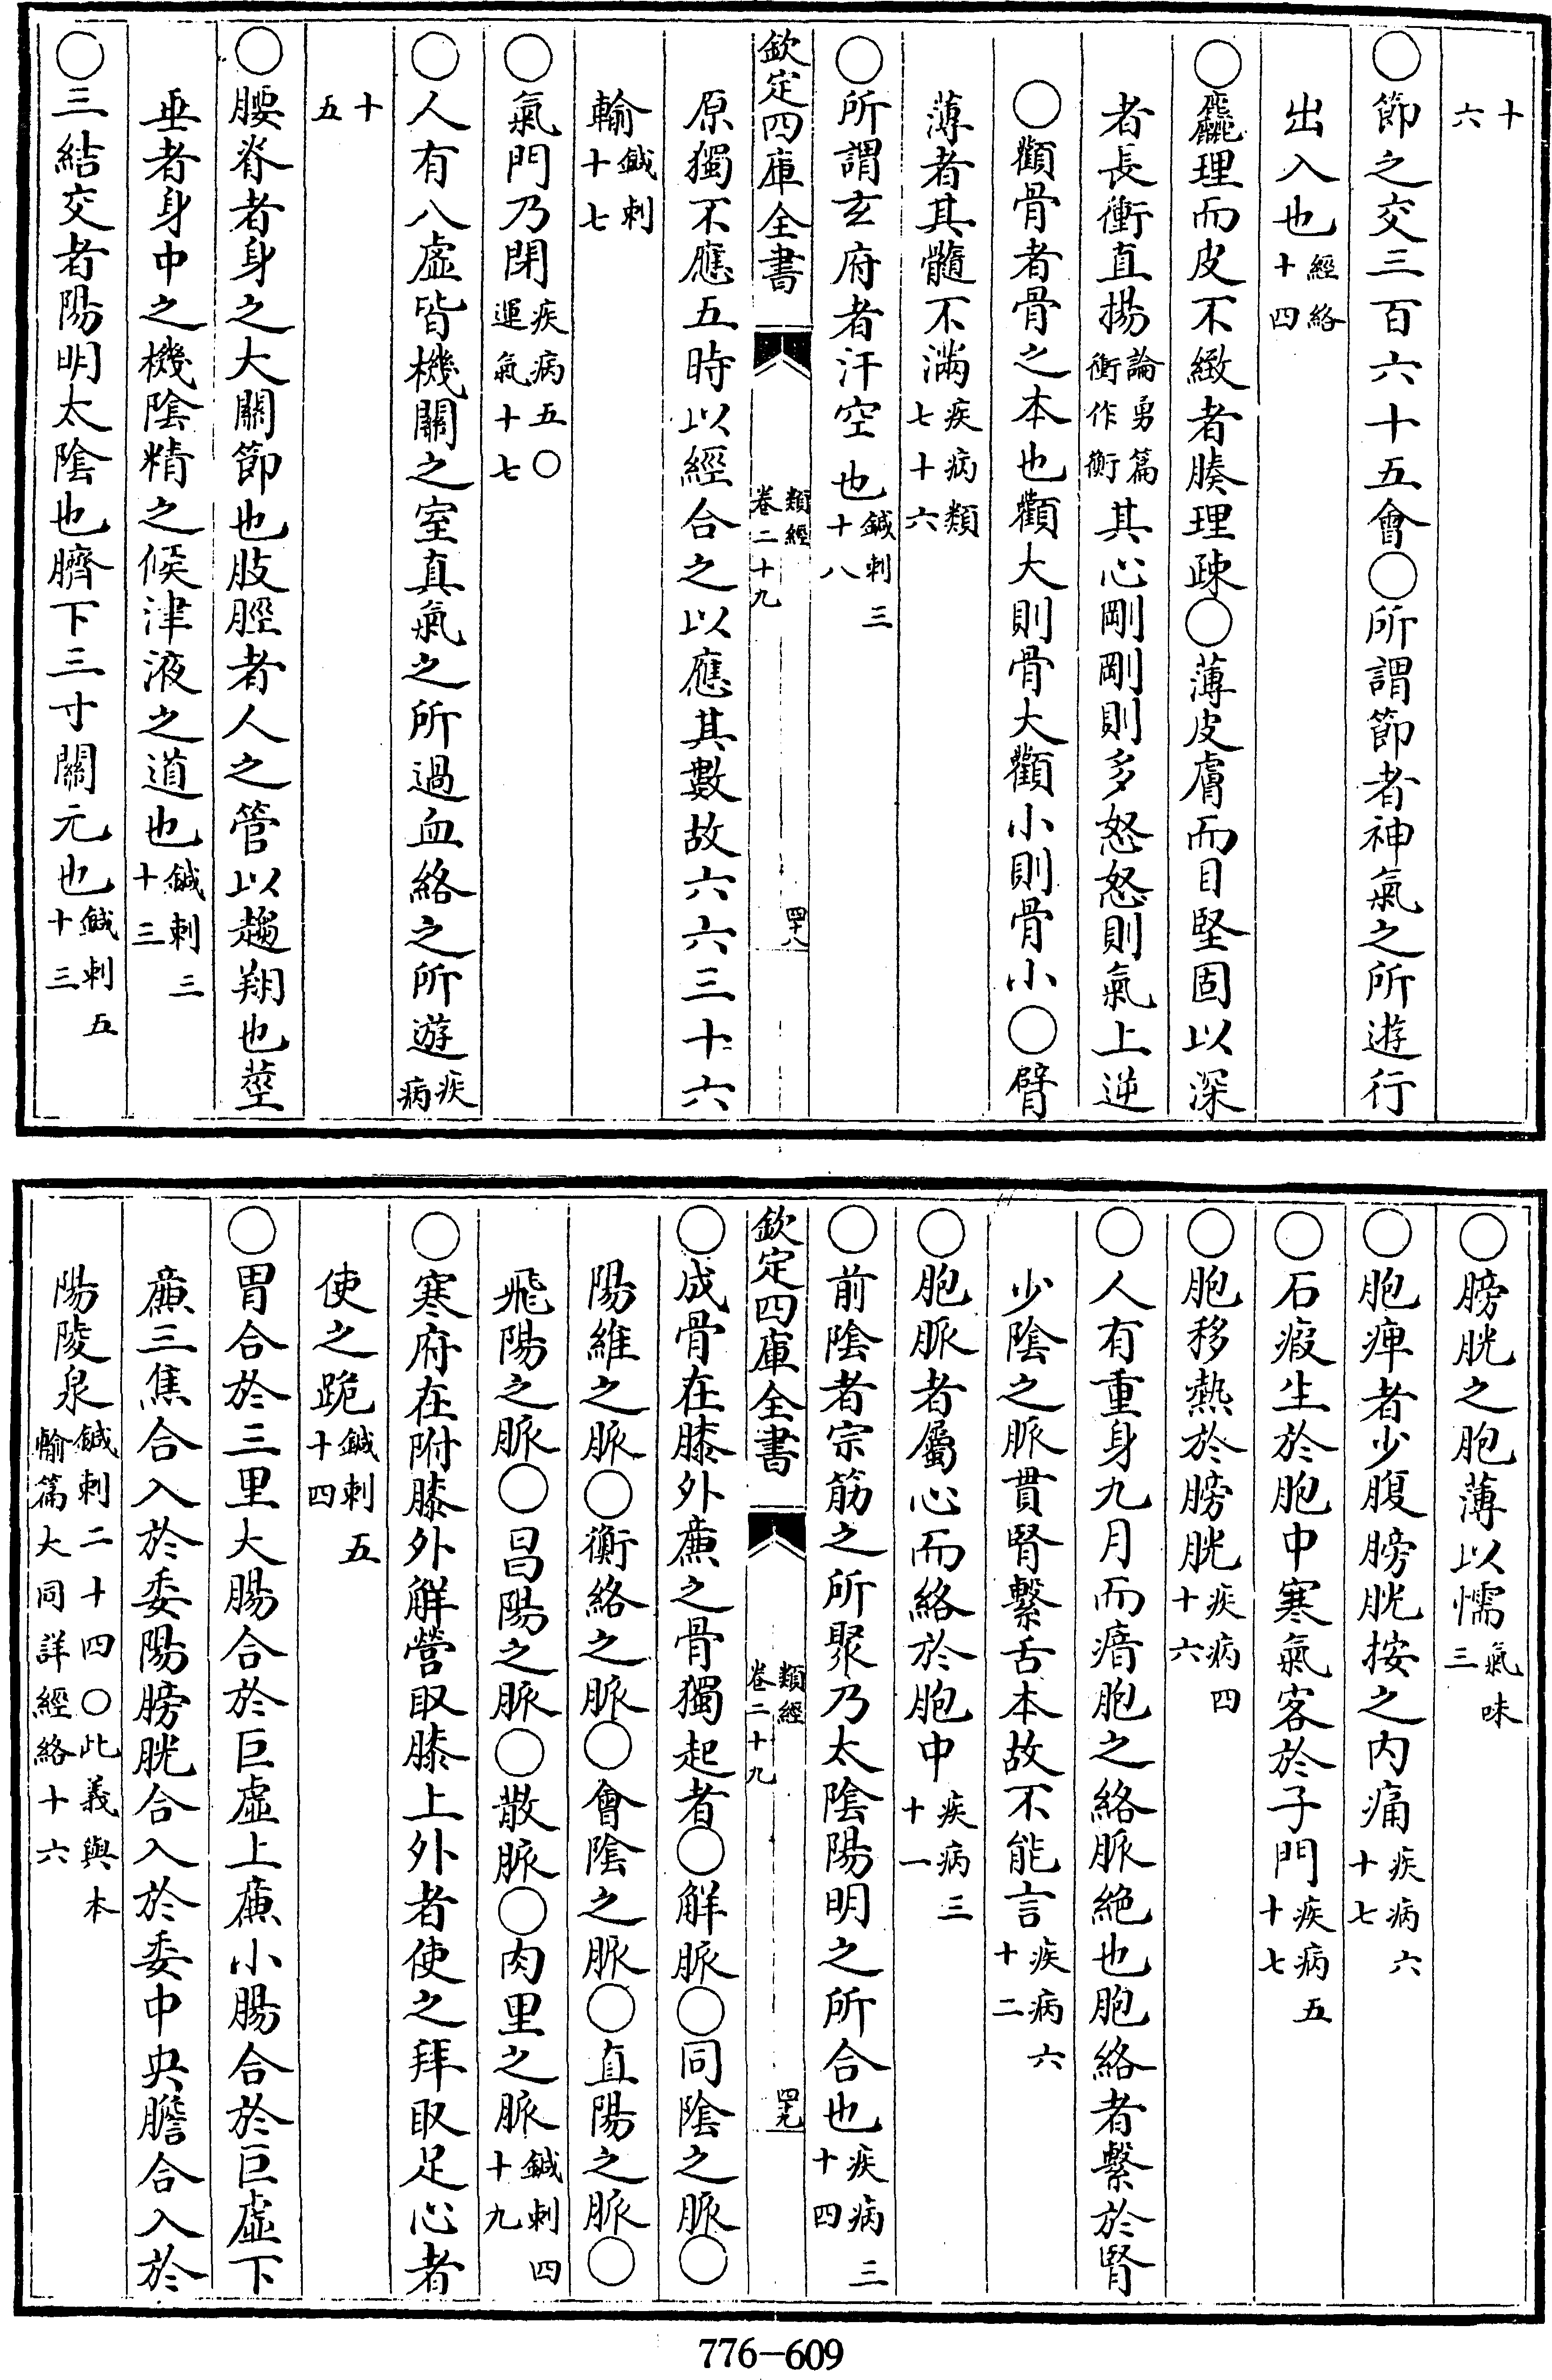 十六
○節之交三百六十五會○所謂節者神氣之所遊行
出入也經絡十四
○麤理而皮不緻者腠理疎○薄皮膚而目堅固以深
者長衝直揚論勇篇衝作衡其心剛剛則多怒怒則氣上逆
○顴骨者骨之本也顴大則骨大顴小則骨小○臂
薄者其髓不滿疾病類七十六
○所謂玄府者汗空也鍼刺三十八
欽定四庫全書 類經卷二十九 四十八
原獨不應五時以經合之以應其數故六六三十六
輸鍼刺十七
氣門乃閉疾病五○運氣十七
○人有八虛皆機關之室真氣之所過血絡之所遊疾病
十五
○腰脊者身之大關節也肢脛者人之管以趨翔也莖
垂者身中之機陰精之候津液之道也鍼刺三十三
○三結交者陽明太陰也臍下三寸關元也鍼刺五十三
○膀胱之胞薄以懦氣味三
○胞痺者少腹膀胱按之內痛疾病六十七
○石瘕生於胞中寒氣客於子門疾病五十七
○胞移熱於膀胱疾病四十六
○人有重身九月而瘖胞之絡脈絕也胞絡者繫於腎
少陰之脈貫腎繫舌本故不能言疾病六十二
○胞脈者屬心而絡於胞中疾病三十一
○前陰者宗筋之所聚乃太陰陽明之所合也疾病三十四
欽定四庫全書 類經卷二十九 四十九
○成骨在膝外廉之骨獨起者○解脈○同陰之脈○
陽維之脈○衡絡之脈○會陰之脈○直陽之脈○
飛陽之脈○昌陽之脈○散脈○肉里之脈鍼刺四十九
○寒府在附膝外解營取膝上外者使之拜取足心者
使之跪鍼刺五十四
○胃合於三里大腸合於巨虛上廉小腸合於巨虛下
廉三焦合入於委陽膀胱合入於委中央膽合入於
陽陵泉鍼刺二十四○此義與本輸篇大同詳經絡十六
776-609